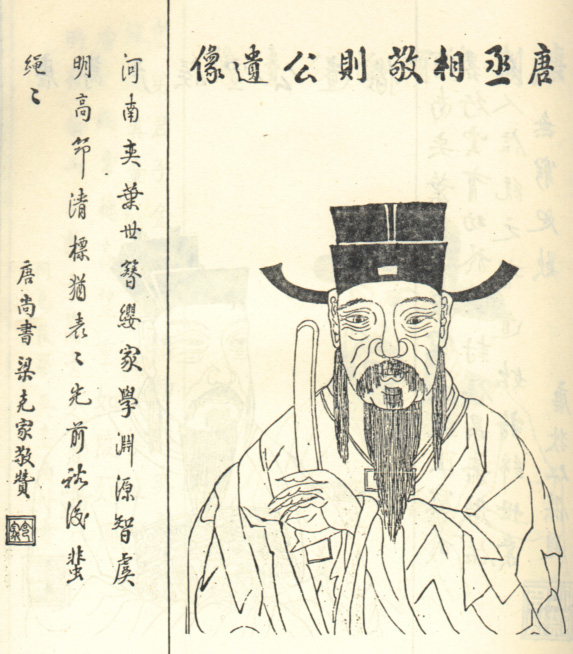 唐丞相敬則公遺像
河南奕葉世簪纓家學淵源智虞
明高節清標猶表〻光前裕後蜚
绳〻
唐尚書梁克家敬贊